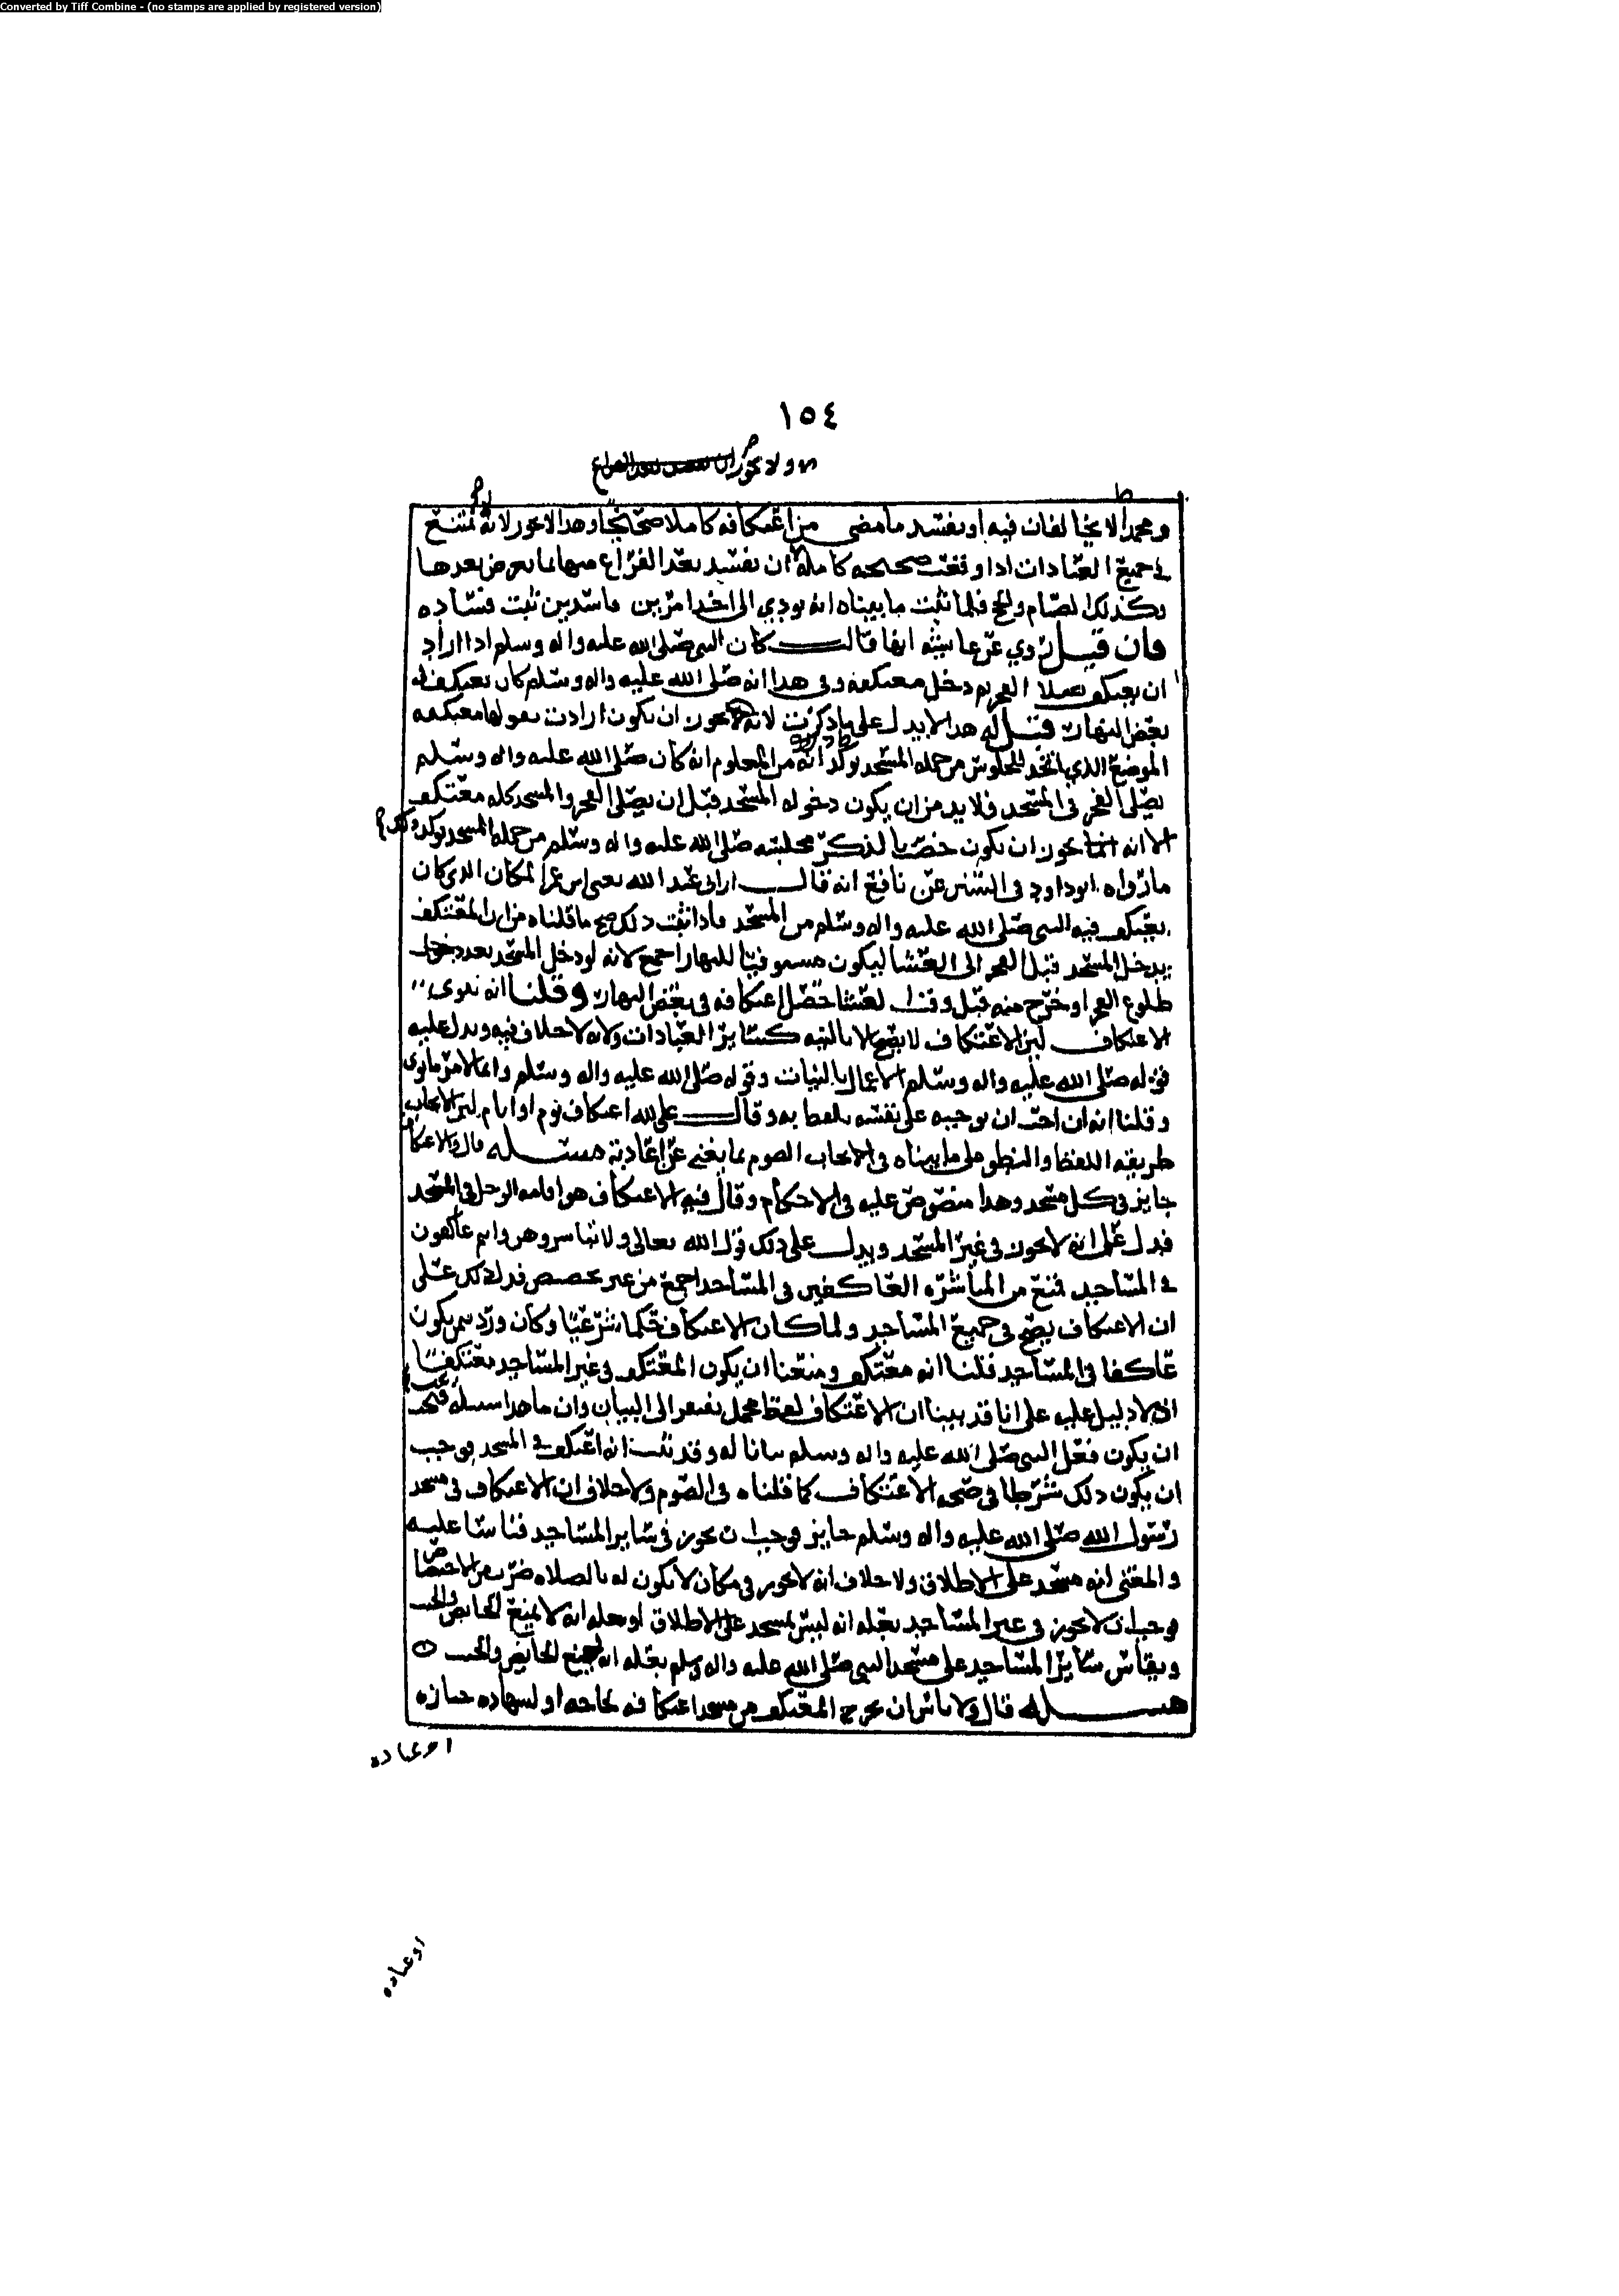 Converted by Tiff Combine - (no stamps are applied by registered version)
١٥٤
ولا يجوز ان تفسد بعد الفراغ
ومحمدا لا يخالفان فيه او يفسد ما مضى من اعتكافه كاملا صحيحا وهذا لا يجوز لانه يمتنع
في جميع العبادات اذا وقعت صحيحه كاملة ان تفسد بعد الفراغ منها لما يعرض بعدها
كذلك الصيام والحج فلما ثبت ما بيناه انه يودي الى احد امرين فاسدين ثبت فساده
فان قيل روي عن عايشه انها قالت كان النبي صلى الله عليه واله وسلم اذا اراد
ان يعتكف صلا الفجر ثم دخل معتكفه وفي هذا انه صلى الله عليه واله وسلم كان يعتكف
بعض النهار قيل له هذا لا يدل على ما ذكرت لانه يجوز ان يكون ارادت بقولها معتكفه
الموضع الذي اتخذ للجلوس من جمله المسجد يوكد انه من المعلوم انه كان صلى الله عليه واله وسلم
يصلي الفجر في المسجد فلا بد من ان يكون دخوله المسجد قبل ان يصلي الفجر والمسجد كله معتكف
الا انه يجوز ان يكون خص بالذكر مجلسه صلى الله عليه واله وسلم من جمله المسجد يوكد ذلك
ما رواه ابو داود في السنن عن نافع انه قال اراني عبد الله يعني ابن عمر المكان الذي كان
يعتكف فيه النبي صلى الله عليه واله وسلم من المسجد فاذا ثبت ذلك صح ما قلناه من ان المعتكف
يدخل المسجد قبل الفجر الى العشا ليكون مستوفيا للنهار اجمع لانه لو دخل المسجد بعد دخول
طلوع الفجر او خرج منه قبل وقت العشا حصل اعتكافه في بعض النهار وقلنا انه ينوي
الاعتكاف لان الاعتكاف لا يصح الا بالنيه كسائر العبادات ولانه لا خلاف فيه ويدل عليه
قوله صلى الله عليه واله وسلم الاعمال بالنيات وقوله صلى الله عليه واله وسلم وانما لامرء ما نوى
وقلنا انه ان احب ان يوجبه على نفسه تلفظ به وقال علي لله اعتكاف يوم او ايام لان الايجاب
طريقه اللفظ والنطق على ما بيناه في ايجاب الصوم بما يغني عن اعادته مسئله قال والاعتكاف
جايز في كل مسجد وهذا منصوص عليه في الاحكام وقال فيه الاعتكاف هو اقامه الرجل في المسجد
فدل على انه لا يجوز في غير المسجد ويدل على ذلك قول الله تعالى ولا تباشروهن وانتم عاكفون
في المساجد فمنع من المباشره العاكفين في المساجد اجمع من غير تخصيص فدل ذلك على
ان الاعتكاف يصح في جميع المساجد ولما كان الاعتكاف حكما شرعيا وكان ورد بمن يكون
عاكفا في المساجد قلنا انه معتكف ومنعنا ان يكون المعتكف في غير المساجد معتكفا
اذ لا دليل عليه على انا قد بينا ان الاعتكاف لفظ مجمل يفتقر الى البيان وان ما هذا سبيله فيجب
ان يكون فعل النبي صلى الله عليه واله وسلم بيانا له وقد ثبت انه اعتكف في المسجد فوجب
ان يكون ذلك شرطا في صحه الاعتكاف كما قلناه في الصوم ولا خلاف ان الاعتكاف في مسجد
رسول الله صلى الله عليه واله وسلم جايز فوجب ان يجوز في ساير المساجد قياسا عليه
والمعنى انه مسجد على الاطلاق ولا خلاف انه لا يجوز في مكان لا يكون له بالصلاه ضرب من الاختصاص
فوجب ان لا يجوز في غير المساجد بعله انه ليس بمسجد على الاطلاق او بعله انه لا يمنع الحايض والجنب
ويقاس ساير المساجد على مسجد النبي صلى الله عليه واله وسلم بعله انه يمنع الحايض والجنب
مسئله قال ولا باس ان يخرج المعتكف من مسجد اعتكافه لحاجه او لشهاده جنازه
او عياده
او عياده